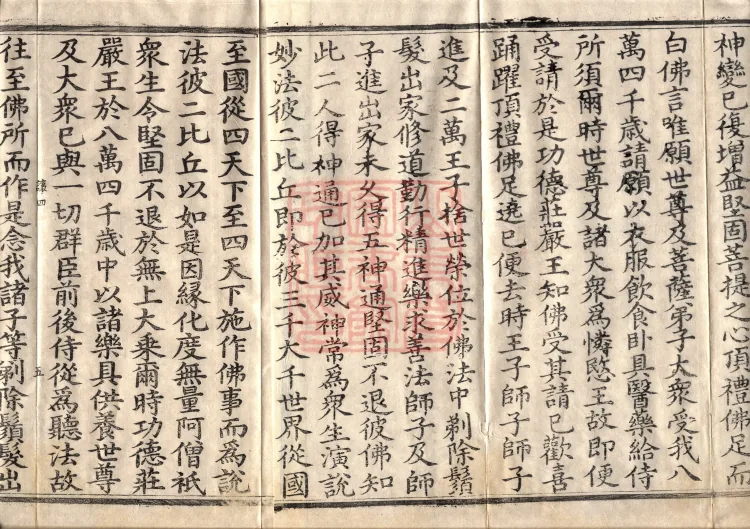 神變已復增益堅固菩提之心頂禮佛足而
白佛言唯願世尊及菩薩弟子大衆受我八
萬四千歲請願以衣服飲食卧具醫藥給侍
所須爾時世尊及諸大衆爲憐愍王故即便
受請於是功德莊嚴王知佛受其請已歡喜
踊躍頂禮佛足遶已便去時王子師子師子
進及二萬王子捨世榮位於佛法中剃除鬚
髮出家修道勤行精進樂求善法師子及師
子進出家未久得五神通堅固不退彼佛知
此二人得神通已加其威神常爲衆生演說
妙法彼二比丘即於彼三千大千世界從國
至國從四天下至四天下施作佛事而爲說
法彼二比丘以如是因緣化度無量阿僧祇
衆生令堅固不退於無上大乘爾時功德莊
嚴王於八萬四千歲中以諸樂具供養世尊
及大衆已與一切群臣前後侍從爲聽法故
讓四
五
往至佛所而作是念我諸子等剃除鬚髮出